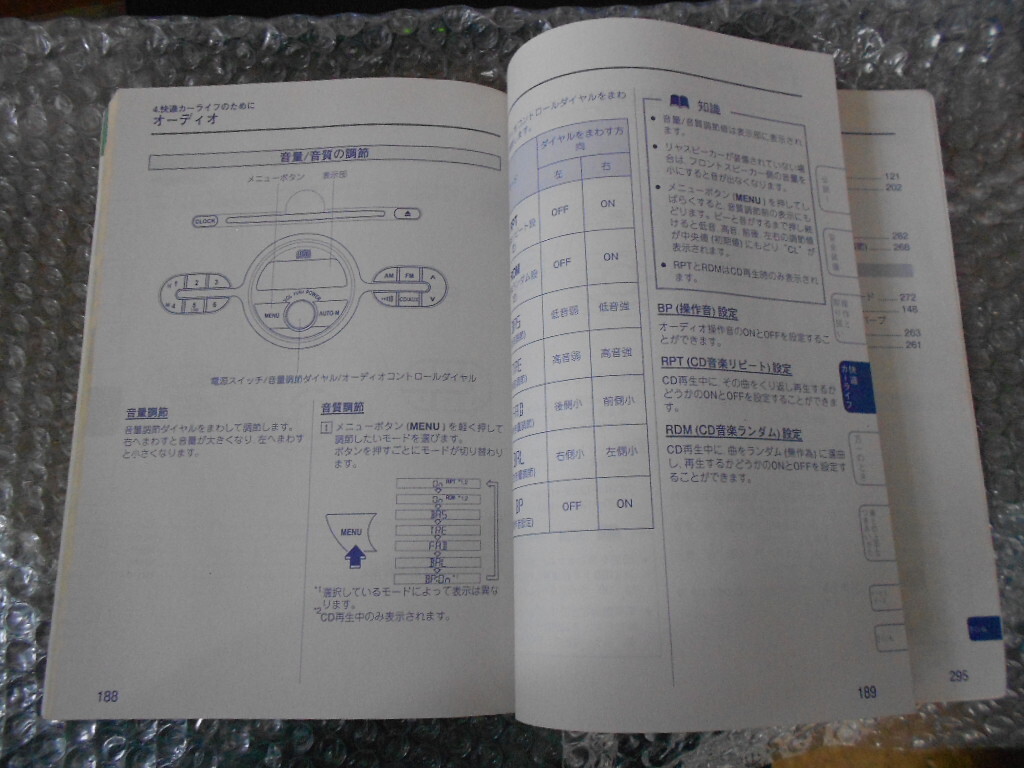 4.快適カーライフのために
オーディオ
音量/音質の調節
メニューボタン 表示部
CLOCK
1 2 3
4 5 6
AM FM
CD/AUX
VOL PUSH POWER
MENU
AUTO-M
電源スイッチ/音量調節ダイヤル/オーディオコントロールダイヤル
音量調節
音量調節ダイヤルをまわして調節します。
右へまわすと音量が大きくなり、左へまわす
と小さくなります。
音質調節
1 メニューボタン(MENU)を軽く押して
調節したいモードを選びます。
ボタンを押すごとにモードが切り替わり
ます。
MENU
RPT *1,2
RDM *1,2
BAS
TRE
FAD
BAL
BP:On *1
*1選択しているモードによって表示は異な
ります。
*2CD再生中のみ表示されます。
188
コントロールダイヤルをまわ
ます。
ダイヤルをまわす方
向
左 右
OFF ON
OFF ON
低音弱 低音強
高音弱 高音強
後側小 前側小
右側小 左側小
BP
OFF ON
知識
● 音量/音質調節値は表示部に表示され
ます。
● リヤスピーカーが装備されていない場
合は、フロントスピーカー側の音量を
小にすると音が出なくなります。
● メニューボタン(MENU)を押してし
ばらくすると、音質調節前の表示にも
どります。ピーと音がするまで押し続
けると低音、高音、前後、左右の調節値
が中央値(初期値)にもどり"CL"が
表示されます。
● RPTとRDMはCD再生時のみ表示され
ます。
BP(操作音)設定
オーディオ操作音のONとOFFを設定するこ
とができます。
RPT(CD音楽リピート)設定
CD再生中に、その曲をくり返し再生するか
どうかのONとOFFを設定することができま
す。
RDM(CD音楽ランダム)設定
CD再生中に、曲をランダム(無作為)に選曲
し、再生するかどうかのONとOFFを設定す
ることができます。
快適
カーライフ
189
121
202
262
268
272
148
263
261
295